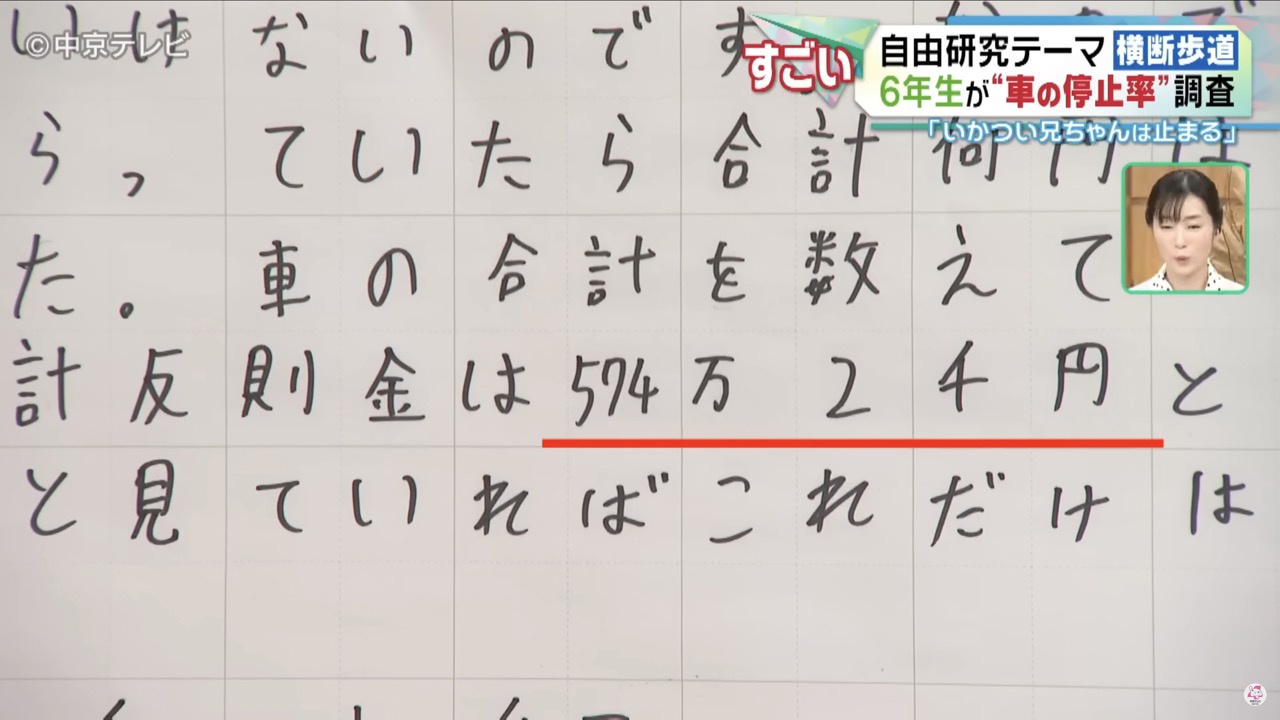 ©中京テレビ
すごい
自由研究テーマ 横断歩道
6年生が“車の停止率”調査
「いかつい兄ちゃんは止まる」
いけないので
ら、ていたら合計何円
た。車の合計を数えて
計反則金は574万2千円と
と見ていればこれだけは